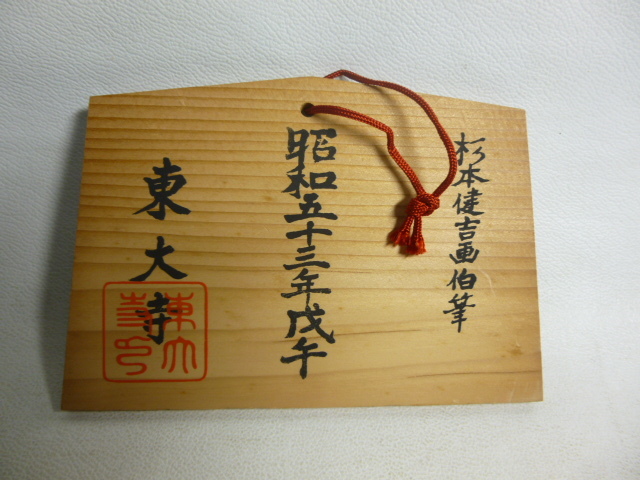 杉本健吉画伯筆
昭和五十三年戊午
東大寺
東大寺印